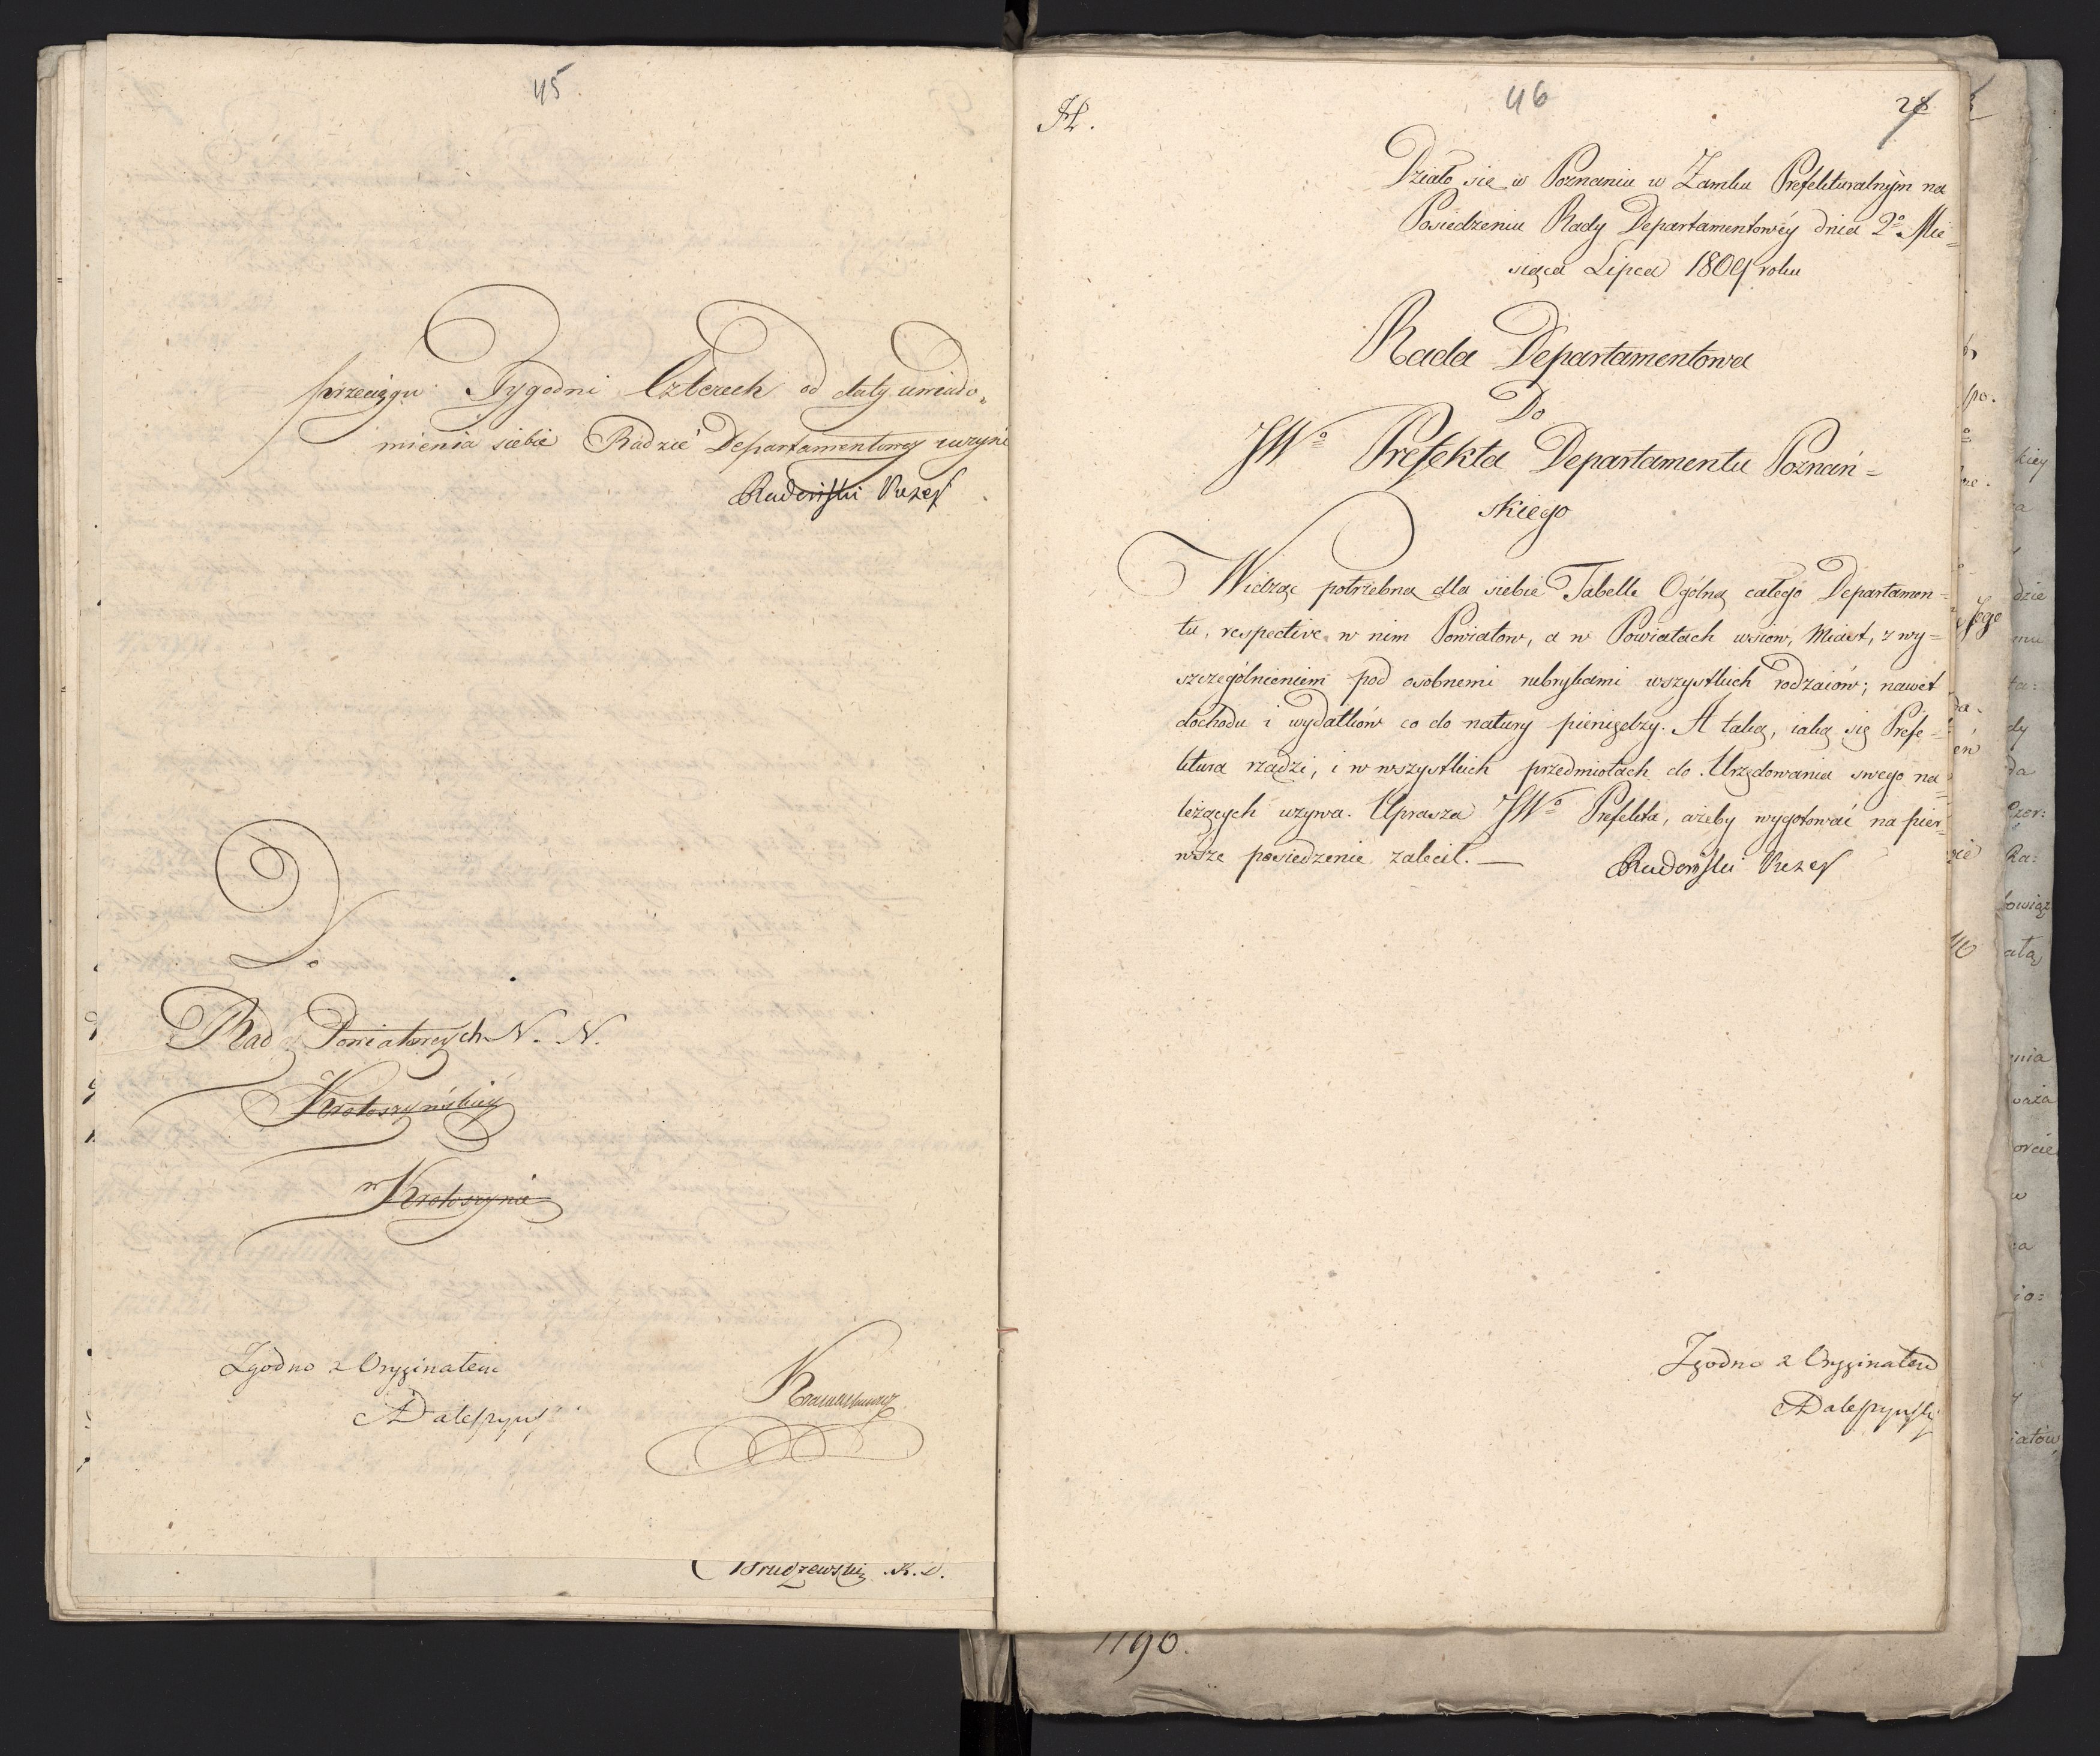 45.
przeciągu Tygodni Czterech od daty uwiado„
mienia siebie Radzie Departamentowey uczyni
Radoński Prezes
Do
Rad Powiatowych N. N.
Krotoszyńskiey
w Krotoszynie
Zgodno z Oryginałem
ADaleszyński
Brudzewski R. D.
H.
46
28
Działo się w Poznaniu w Zamku Prefekturalnym na
Posiedzeniu Rady Departamentowéy dnia 2º Mie=
siąca Lipca 1809 roku
Rada Departamentowa
Do
JWº Prefekta Departamentu Poznań=
skiego
Widząc potrzebną dla siebie Tabellę Ogólną całego Departamen=
tu, respective w nim Powiatow, a w Powiatach wsiow, Miast, z wy=
szczególnieniem pod osobnemi rubrykami wszystkich rodzaiów; nawet
dochodu i wydatków co do natury pieniędzy. A taką, iaką się Prefe=
ktura rządzi, i w wszystkich przedmiotach do Urzędowania swego na=
leżących uzywa. Uprasza JWº Prefekta, ażeby wygotować na pier=
wsze posiedzenie zalecił. —
Radoński Prezes
Zgodno z Oryginałem
ADaleszyński
1190.